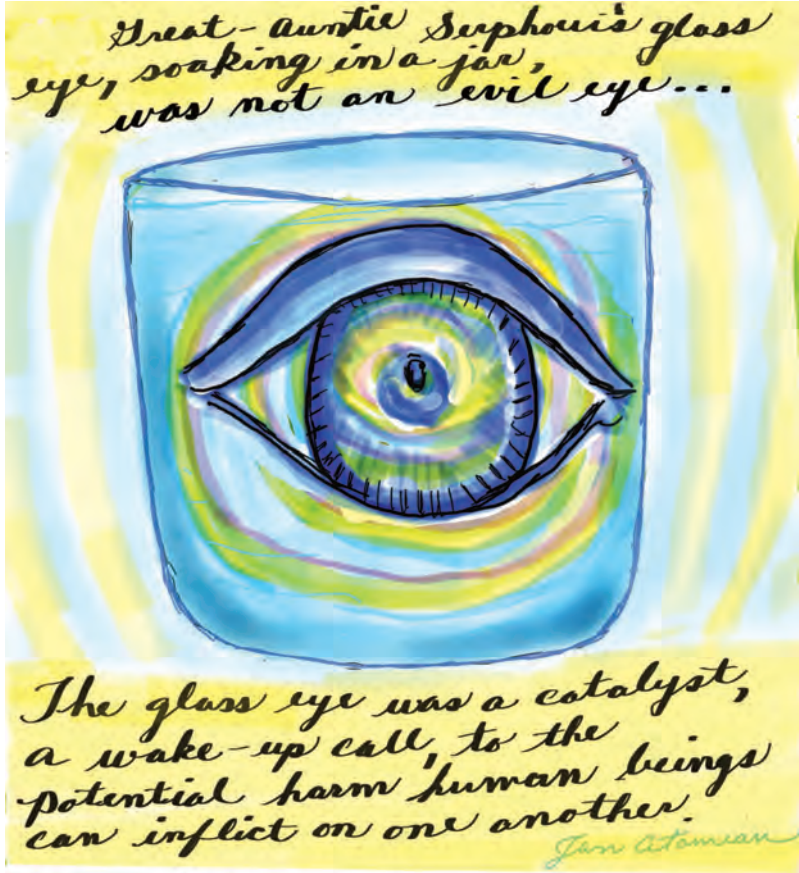 Great-Auntie Serphoui's glass
eye, soaking in a jar,
was not an evil eye...
The glass eye was a catalyst,
a wake-up call, to the
potential harm human beings
can inflict on one another.
Jan Atamian